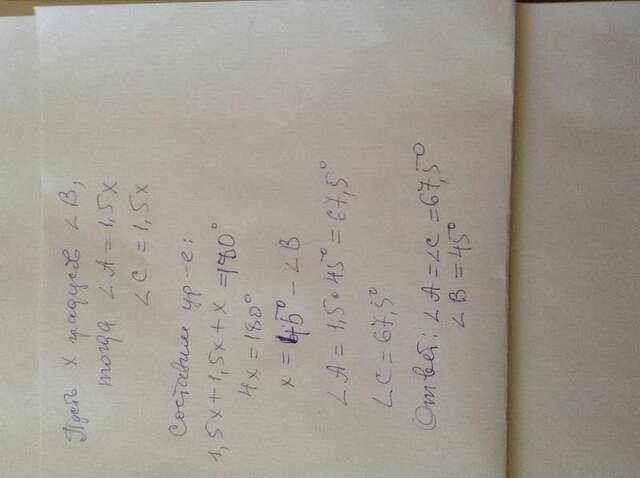 Пусть x градусів ∠B,
тогда ∠A = 1,5x
∠C = 1,5x
Составим ур-е:
1,5x + 1,5x + x = 180°
4x = 180°
x = 45° - ∠B
∠A = 1,5 · 45° = 67,5°
∠C = 67,5°
Ответ: ∠A = ∠C = 67,5°
∠B = 45°